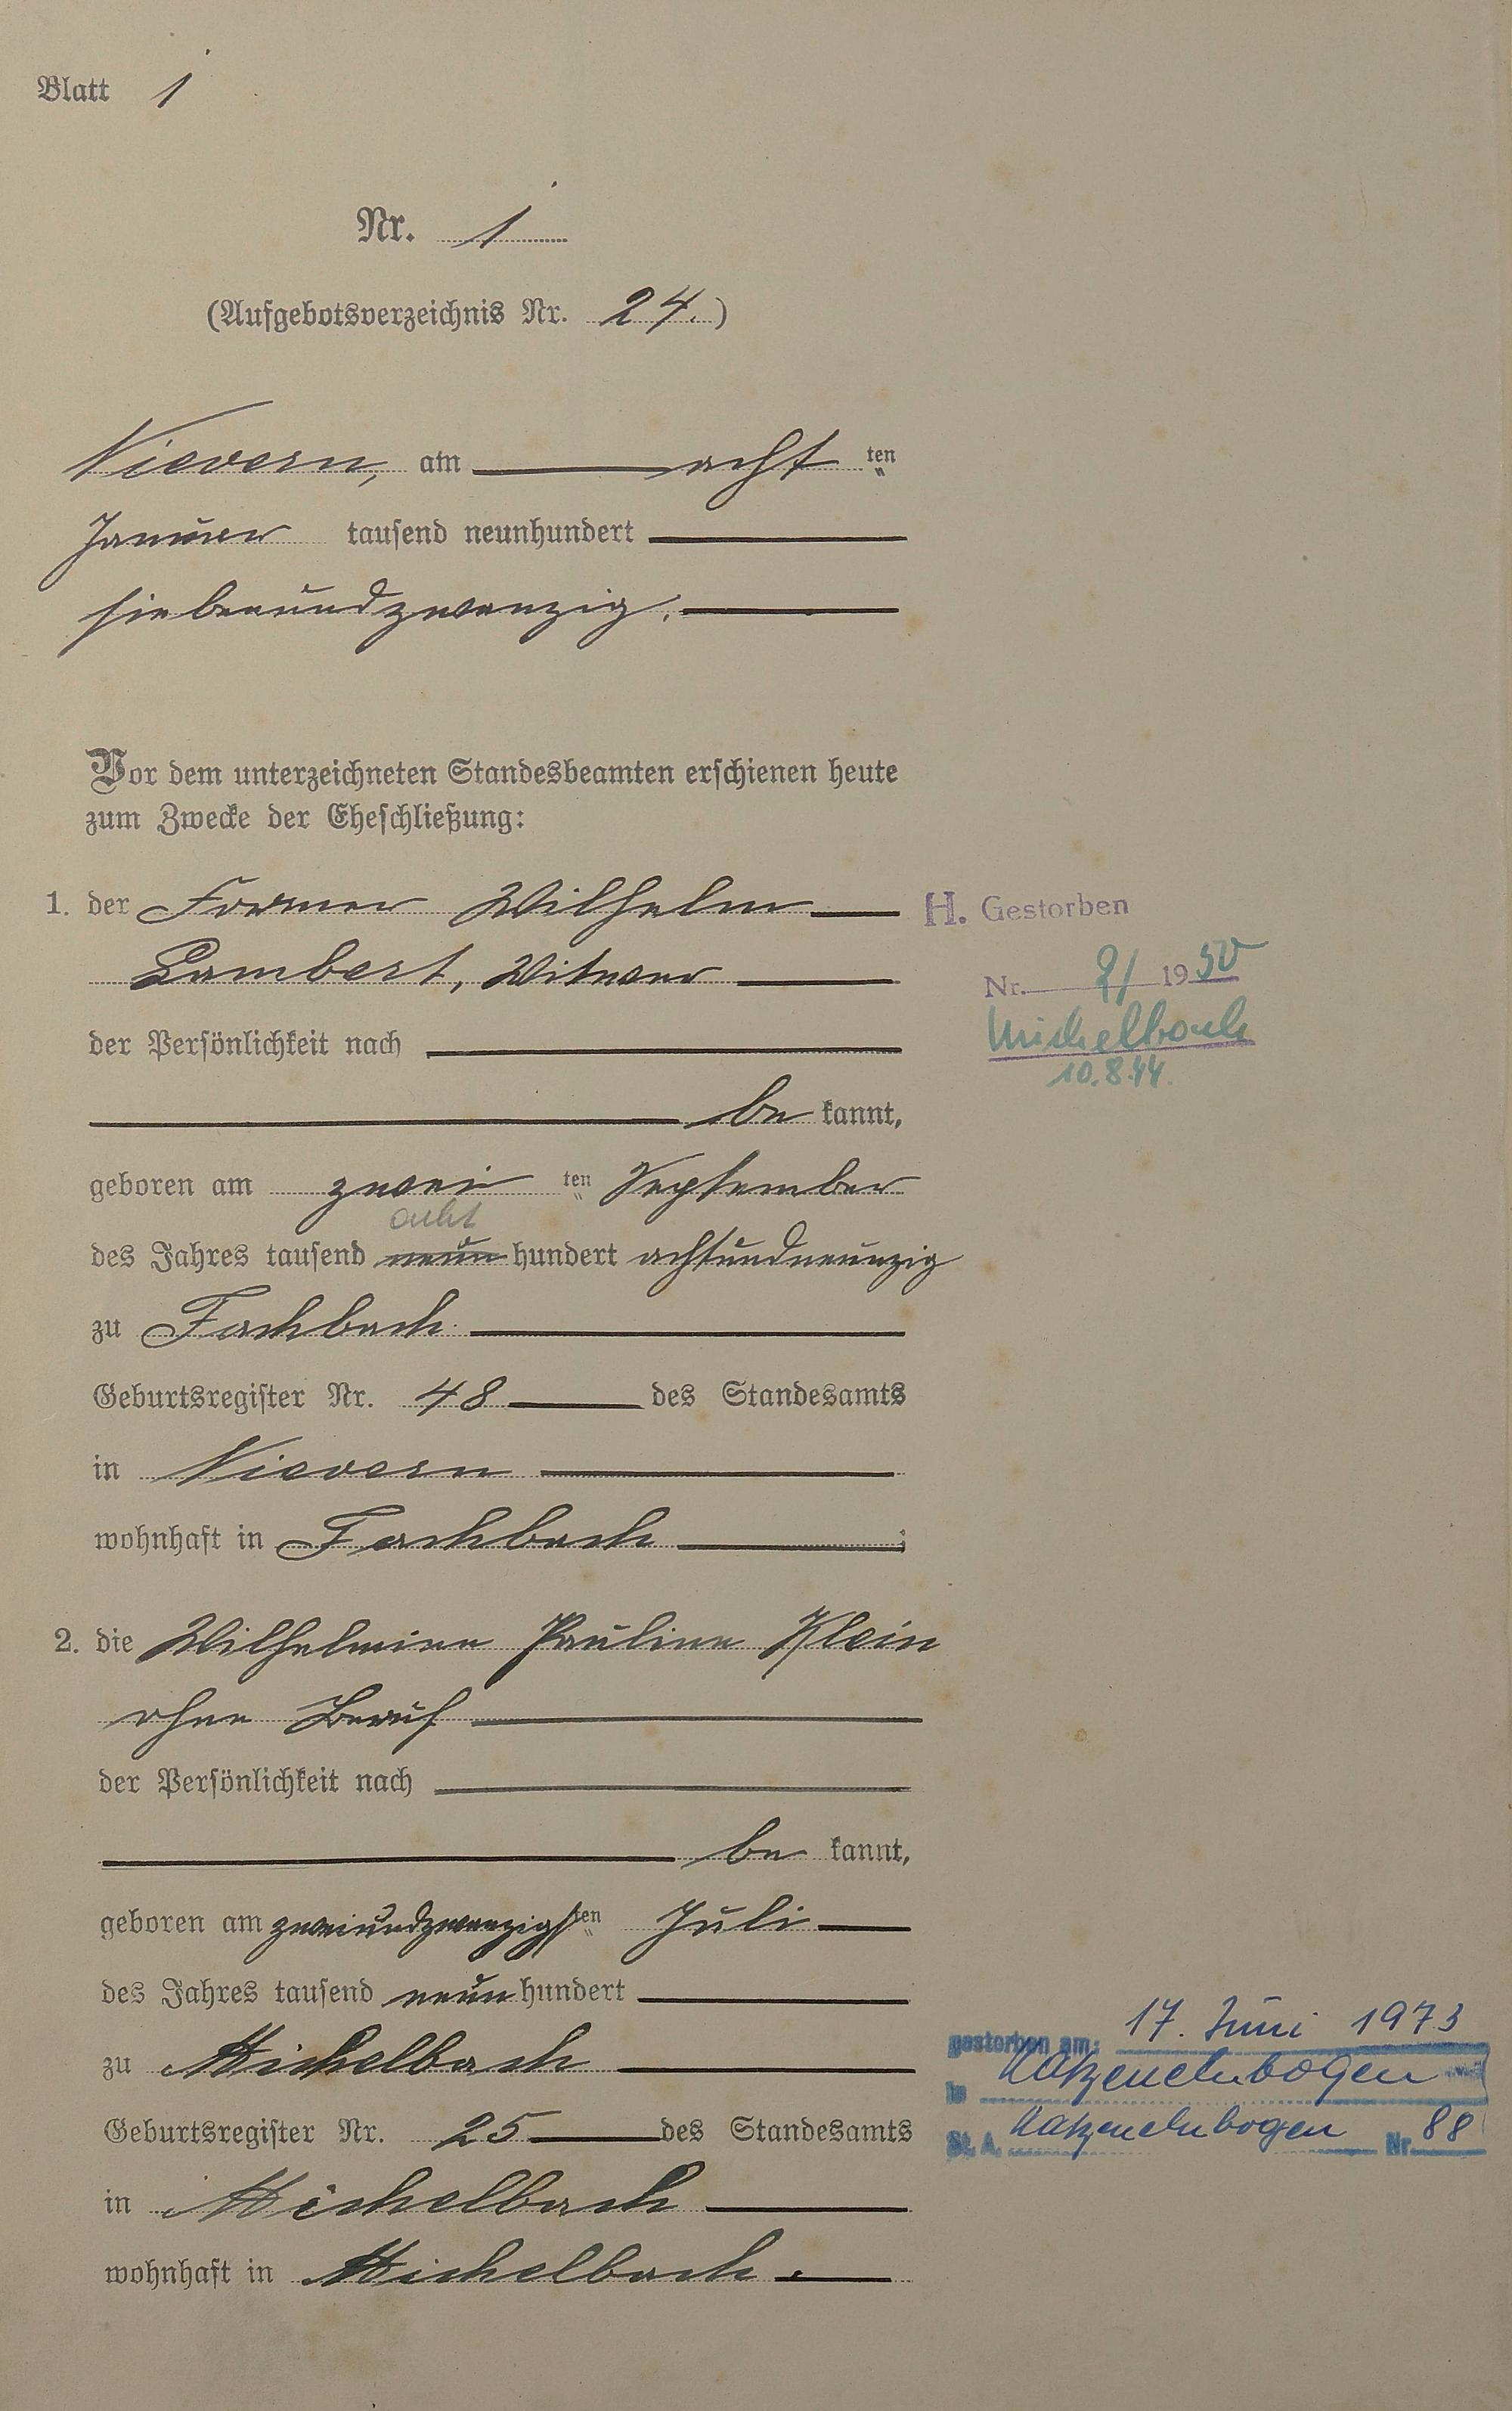 Blatt 1
Nr. 1
(Aufgebotsverzeichnis Nr. 24.)
Nievern, am acht ten
Januar tausend neunhundert
siebenundzwanzig.
Vor dem unterzeichneten Standesbeamten erschienen heute
zum Zwecke der Eheschließung:
1. der Former Wilhelm
Lambert, Witwer
H. Gestorben
Nr. 8/ 1950
Michelbach
10.8.44.
der Persönlichkeit nach
be kannt,
geboren am zwei ten September
acht
des Jahres tausend neun hundert achtundneunzig
zu Fachbach
Geburtsregister Nr. 48 des Standesamts
in Nievern
wohnhaft in Fachbach ;
2. die Wilhelmine Pauline Klein
ohne Beruf
der Persönlichkeit nach
be kannt,
geboren am zweiundzwanzigsten Juli
des Jahres tausend neun hundert
zu Michelbach
Geburtsregister Nr. 25 des Standesamts
in Michelbach
wohnhaft in Michelbach.
gestorben am: 17. Juni 1973
in Katzenelnbogen
St. A. Katzenelnbogen Nr. 88